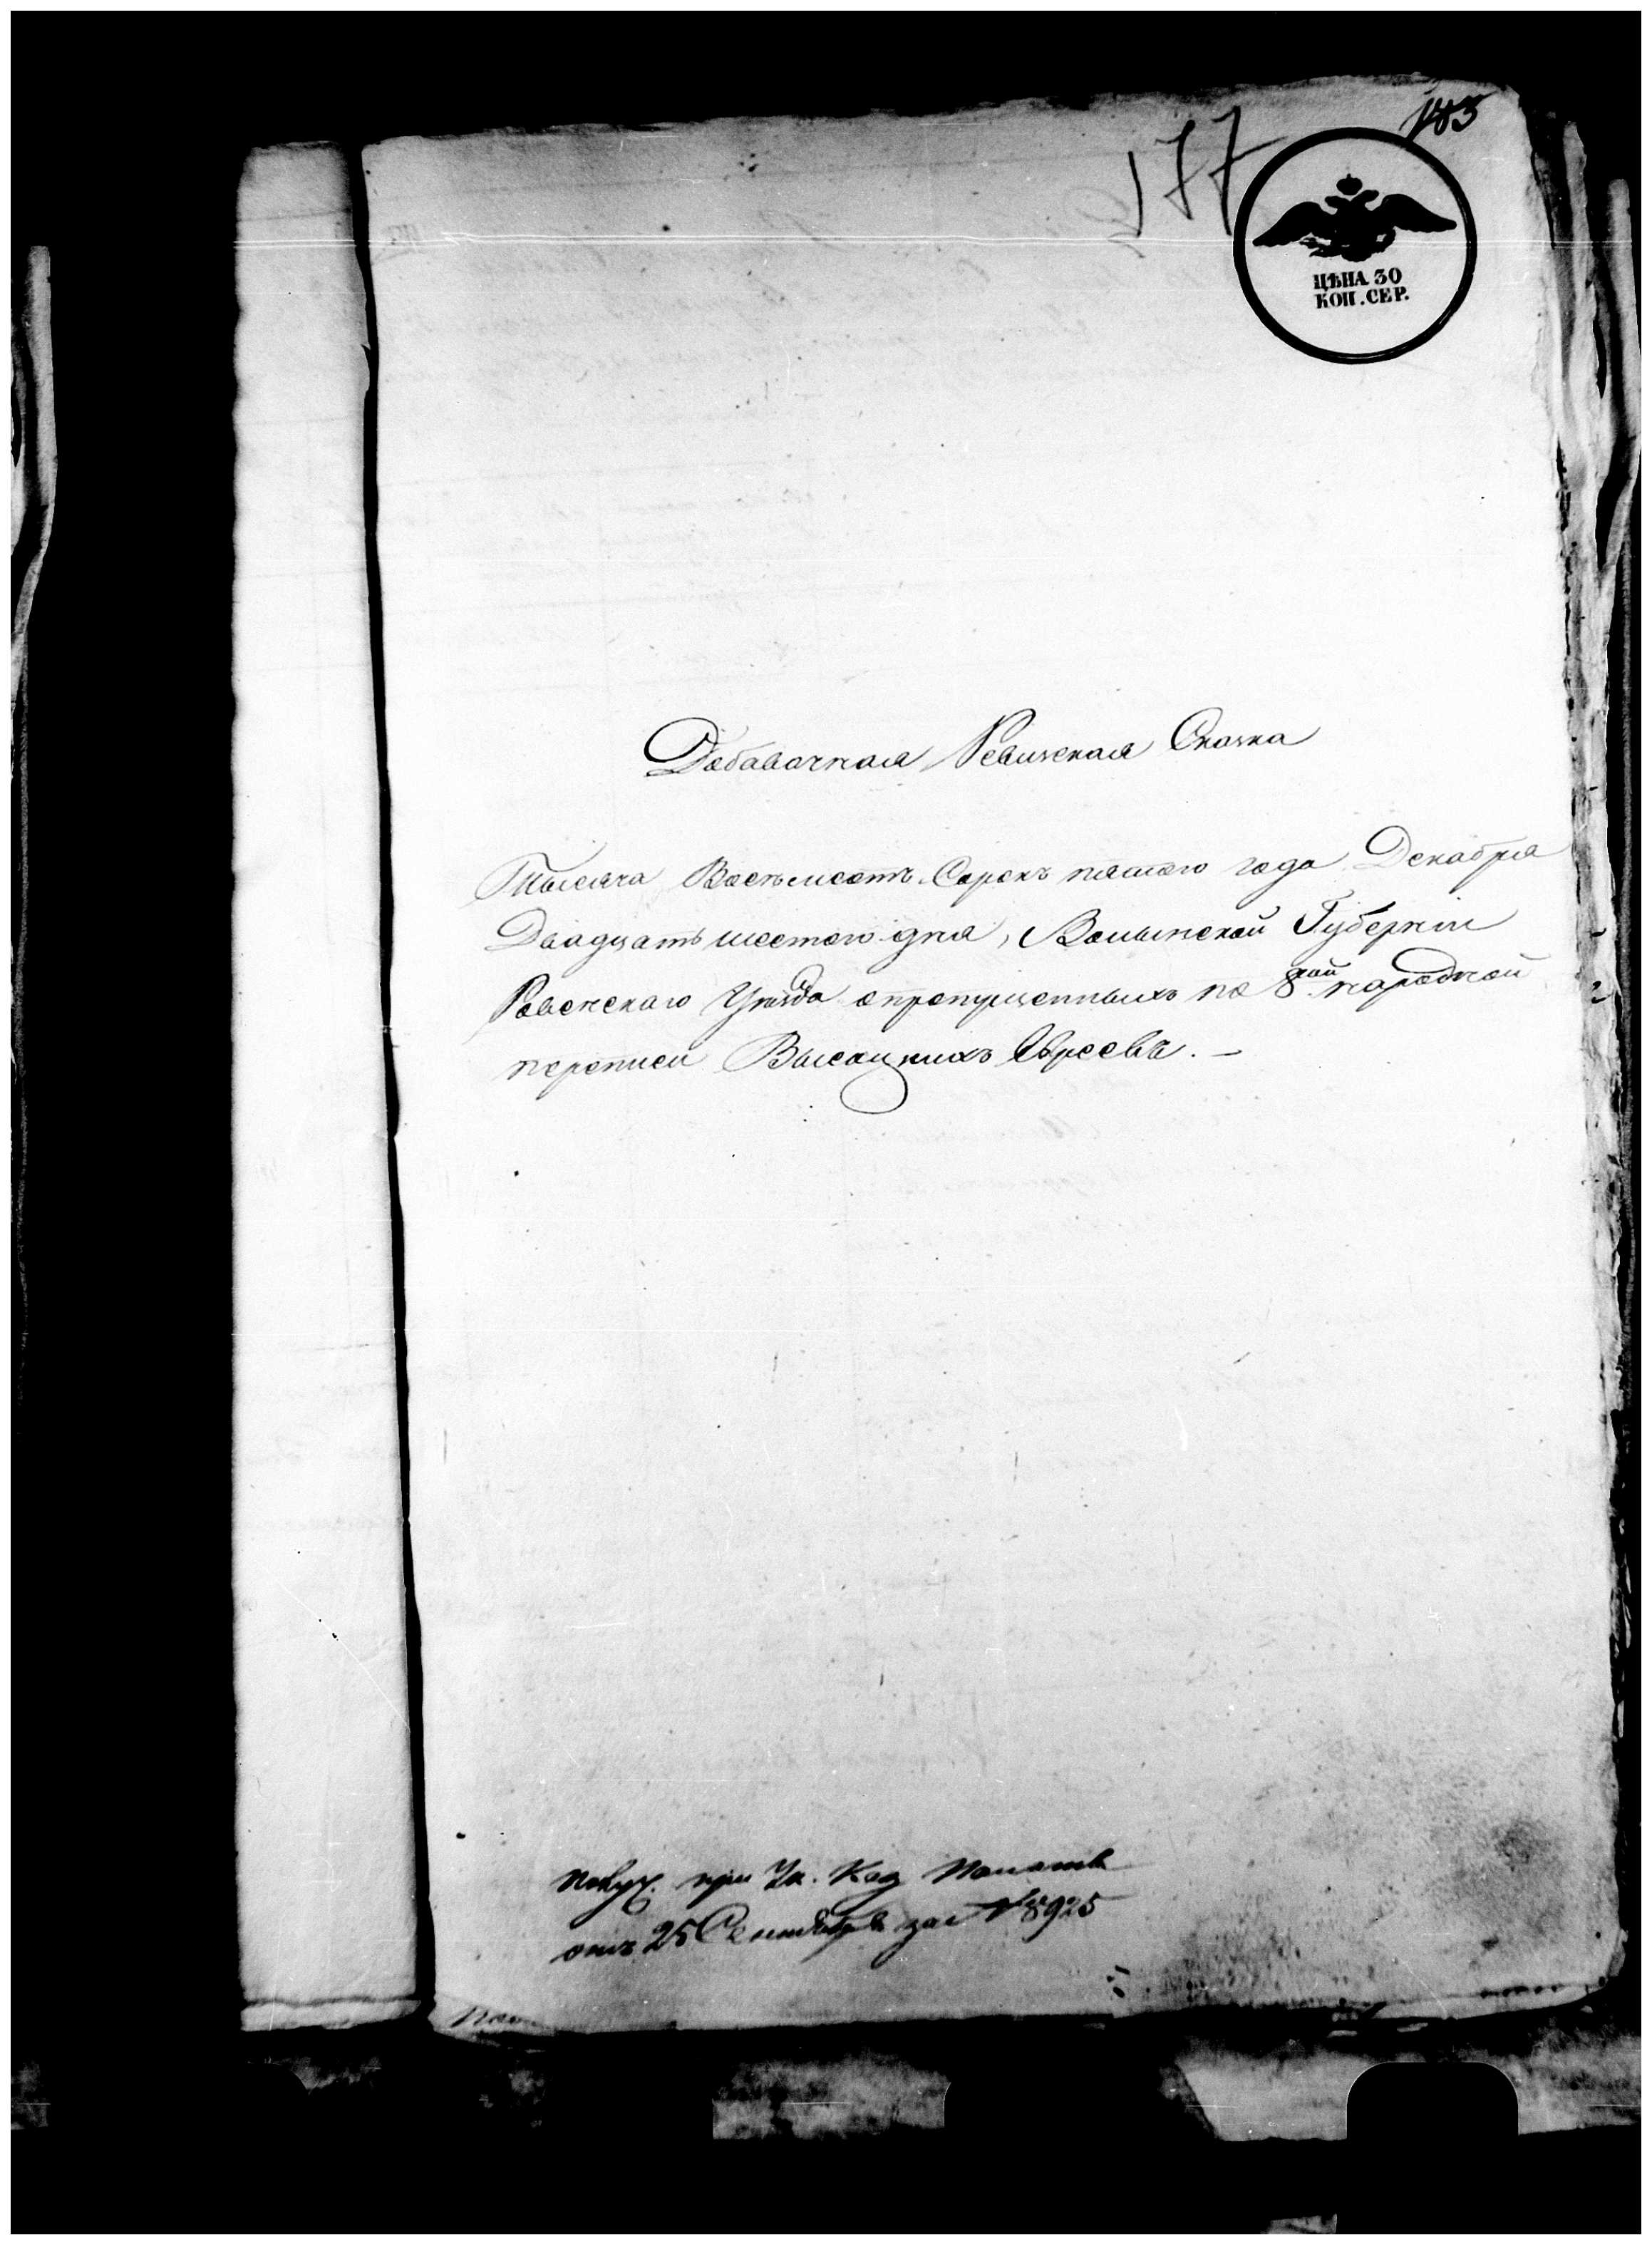 177
ЦѢНА 30
КОП. СЕР.
Добавочная Ревизская Сказка
Тысяча Восемьсотъ Сорокъ пятого года Декабря
Двадцать шестого дня, Волынской Губерніи
Ровенскаго Уѣзда о пропущенныхъ по 8ой народной
переписи Высоцкихъ Евреевъ. —
при Ук. Каз Палаты
отъ 25 Сентября за № 8925